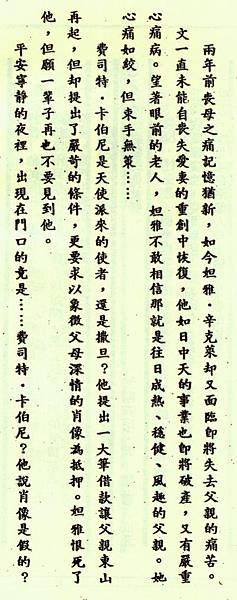 兩年前喪母之痛記憶猶新，如今妲雅·辛克萊却又面臨即將失去父親的痛苦。
文一直未能自喪失愛妻的重創中恢復，他如日中天的事業也即將破產，又有嚴重
心臟病。望著眼前的老人，妲雅不敢相信那就是往日成熟、穩健、風趣的父親。她
心痛如絞，但束手無策……
費司特·卡伯尼是天使派來的使者，還是撒旦？他提出一大筆借款讓父親東山
再起，但却提出了嚴苛的條件，更要求以象徵父母深情的肖像為抵押。妲雅恨死了
他，但願一輩子再也不要見到他。
平安寧靜的夜裡，出現在門口的竟是……費司特·卡伯尼？他說肖像是假的？